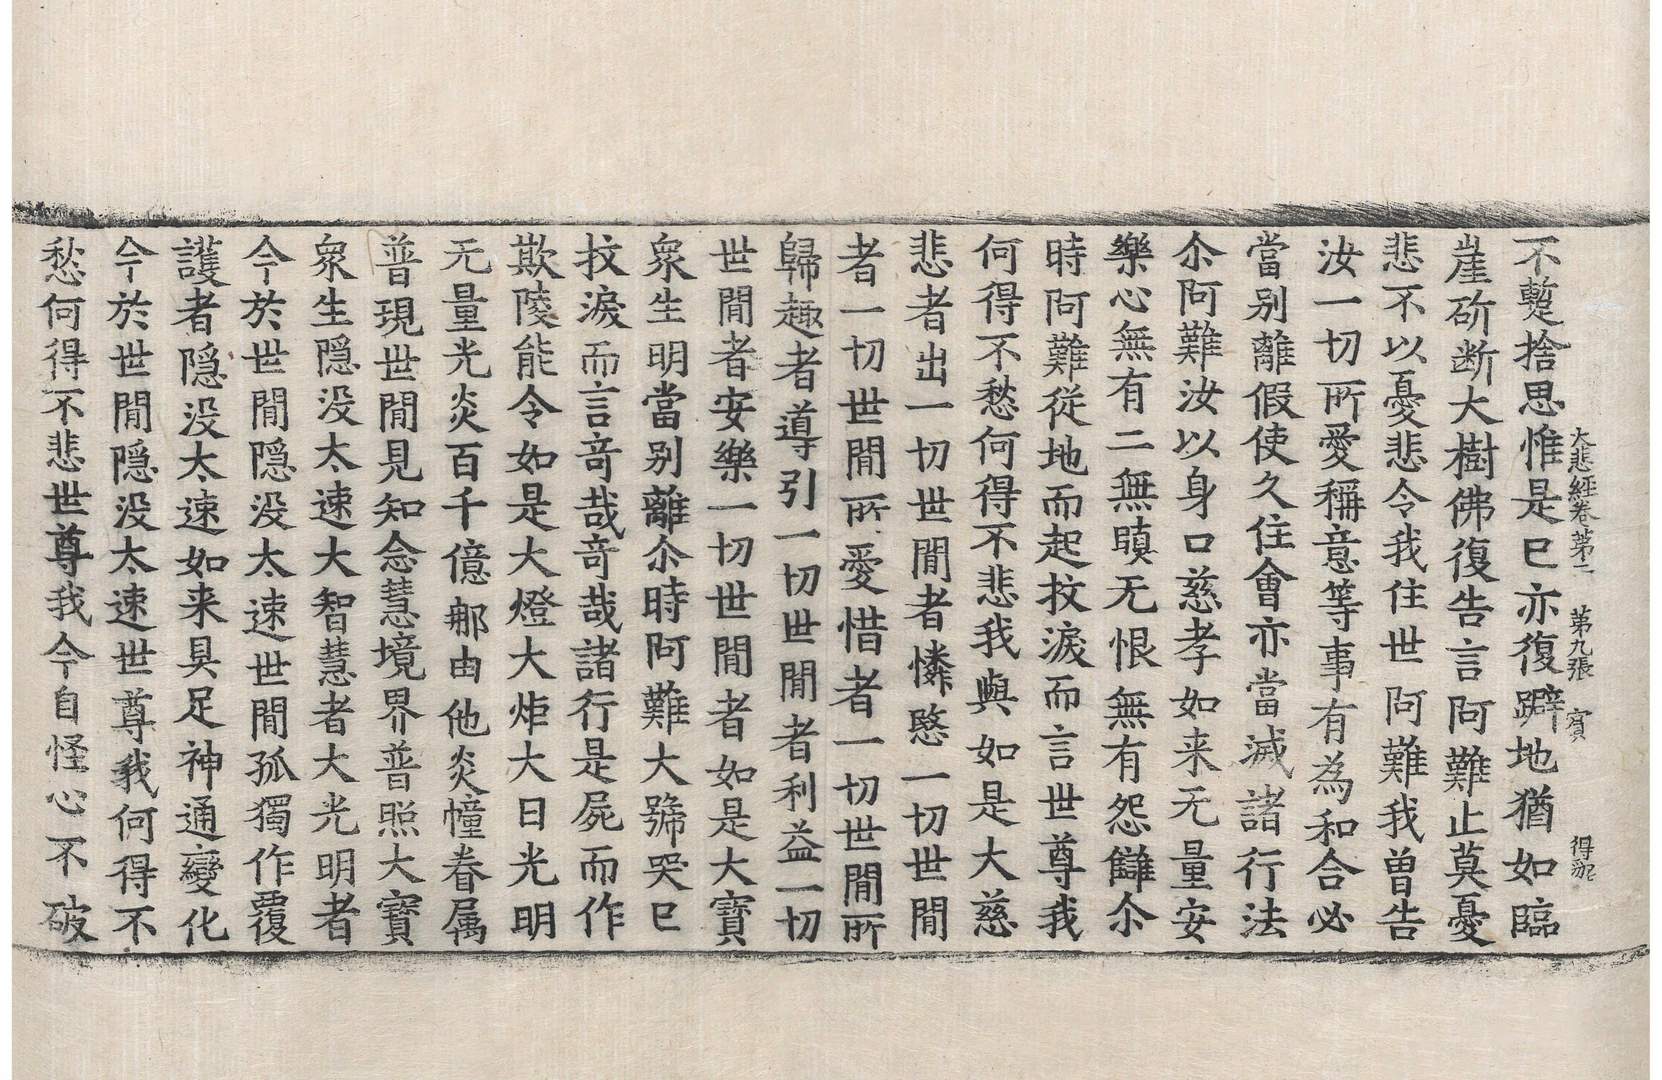 大悲經卷第二 第九張 賓 得
不蹔捨思惟是已亦復躃地猶如臨
崖斫断大樹佛復告言阿難止莫憂
悲不以憂悲令我住世阿難我曽告
汝一切所愛稱意等事有為和合必
當别離假使久住會亦當滅諸行法
尒阿難汝以身口慈孝如来无量安
樂心無有二無瞋无恨無有怨讎尒
時阿難従地而起抆淚而言世尊我
何得不愁何得不悲我與如是大慈
悲者出一切世間者憐愍一切世間
者一切世間所愛惜者一切世間所
歸趣者導引一切世間者利益一切
世間者安樂一切世間者如是大寶
衆生明當别離尒時阿難大號哭已
抆淚而言竒哉竒哉諸行是屍而作
欺陵能令如是大燈大炬大日光明
无量光炎百千億那由他炎幢眷属
普現世間見知念慧境界普照大寶
衆生隠没太速大智慧者大光明者
今於世間隠没太速世間孤獨作覆
護者隠没太速如来具足神通變化
今於世間隠没太速世尊我何得不
愁何得不悲世尊我今自怪心不破